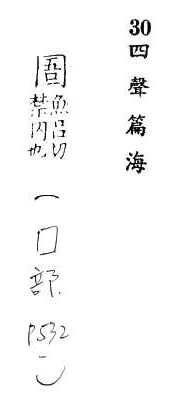 30四聲篇海
圄 魚呂切
禁囚也
(囗部 P532-)